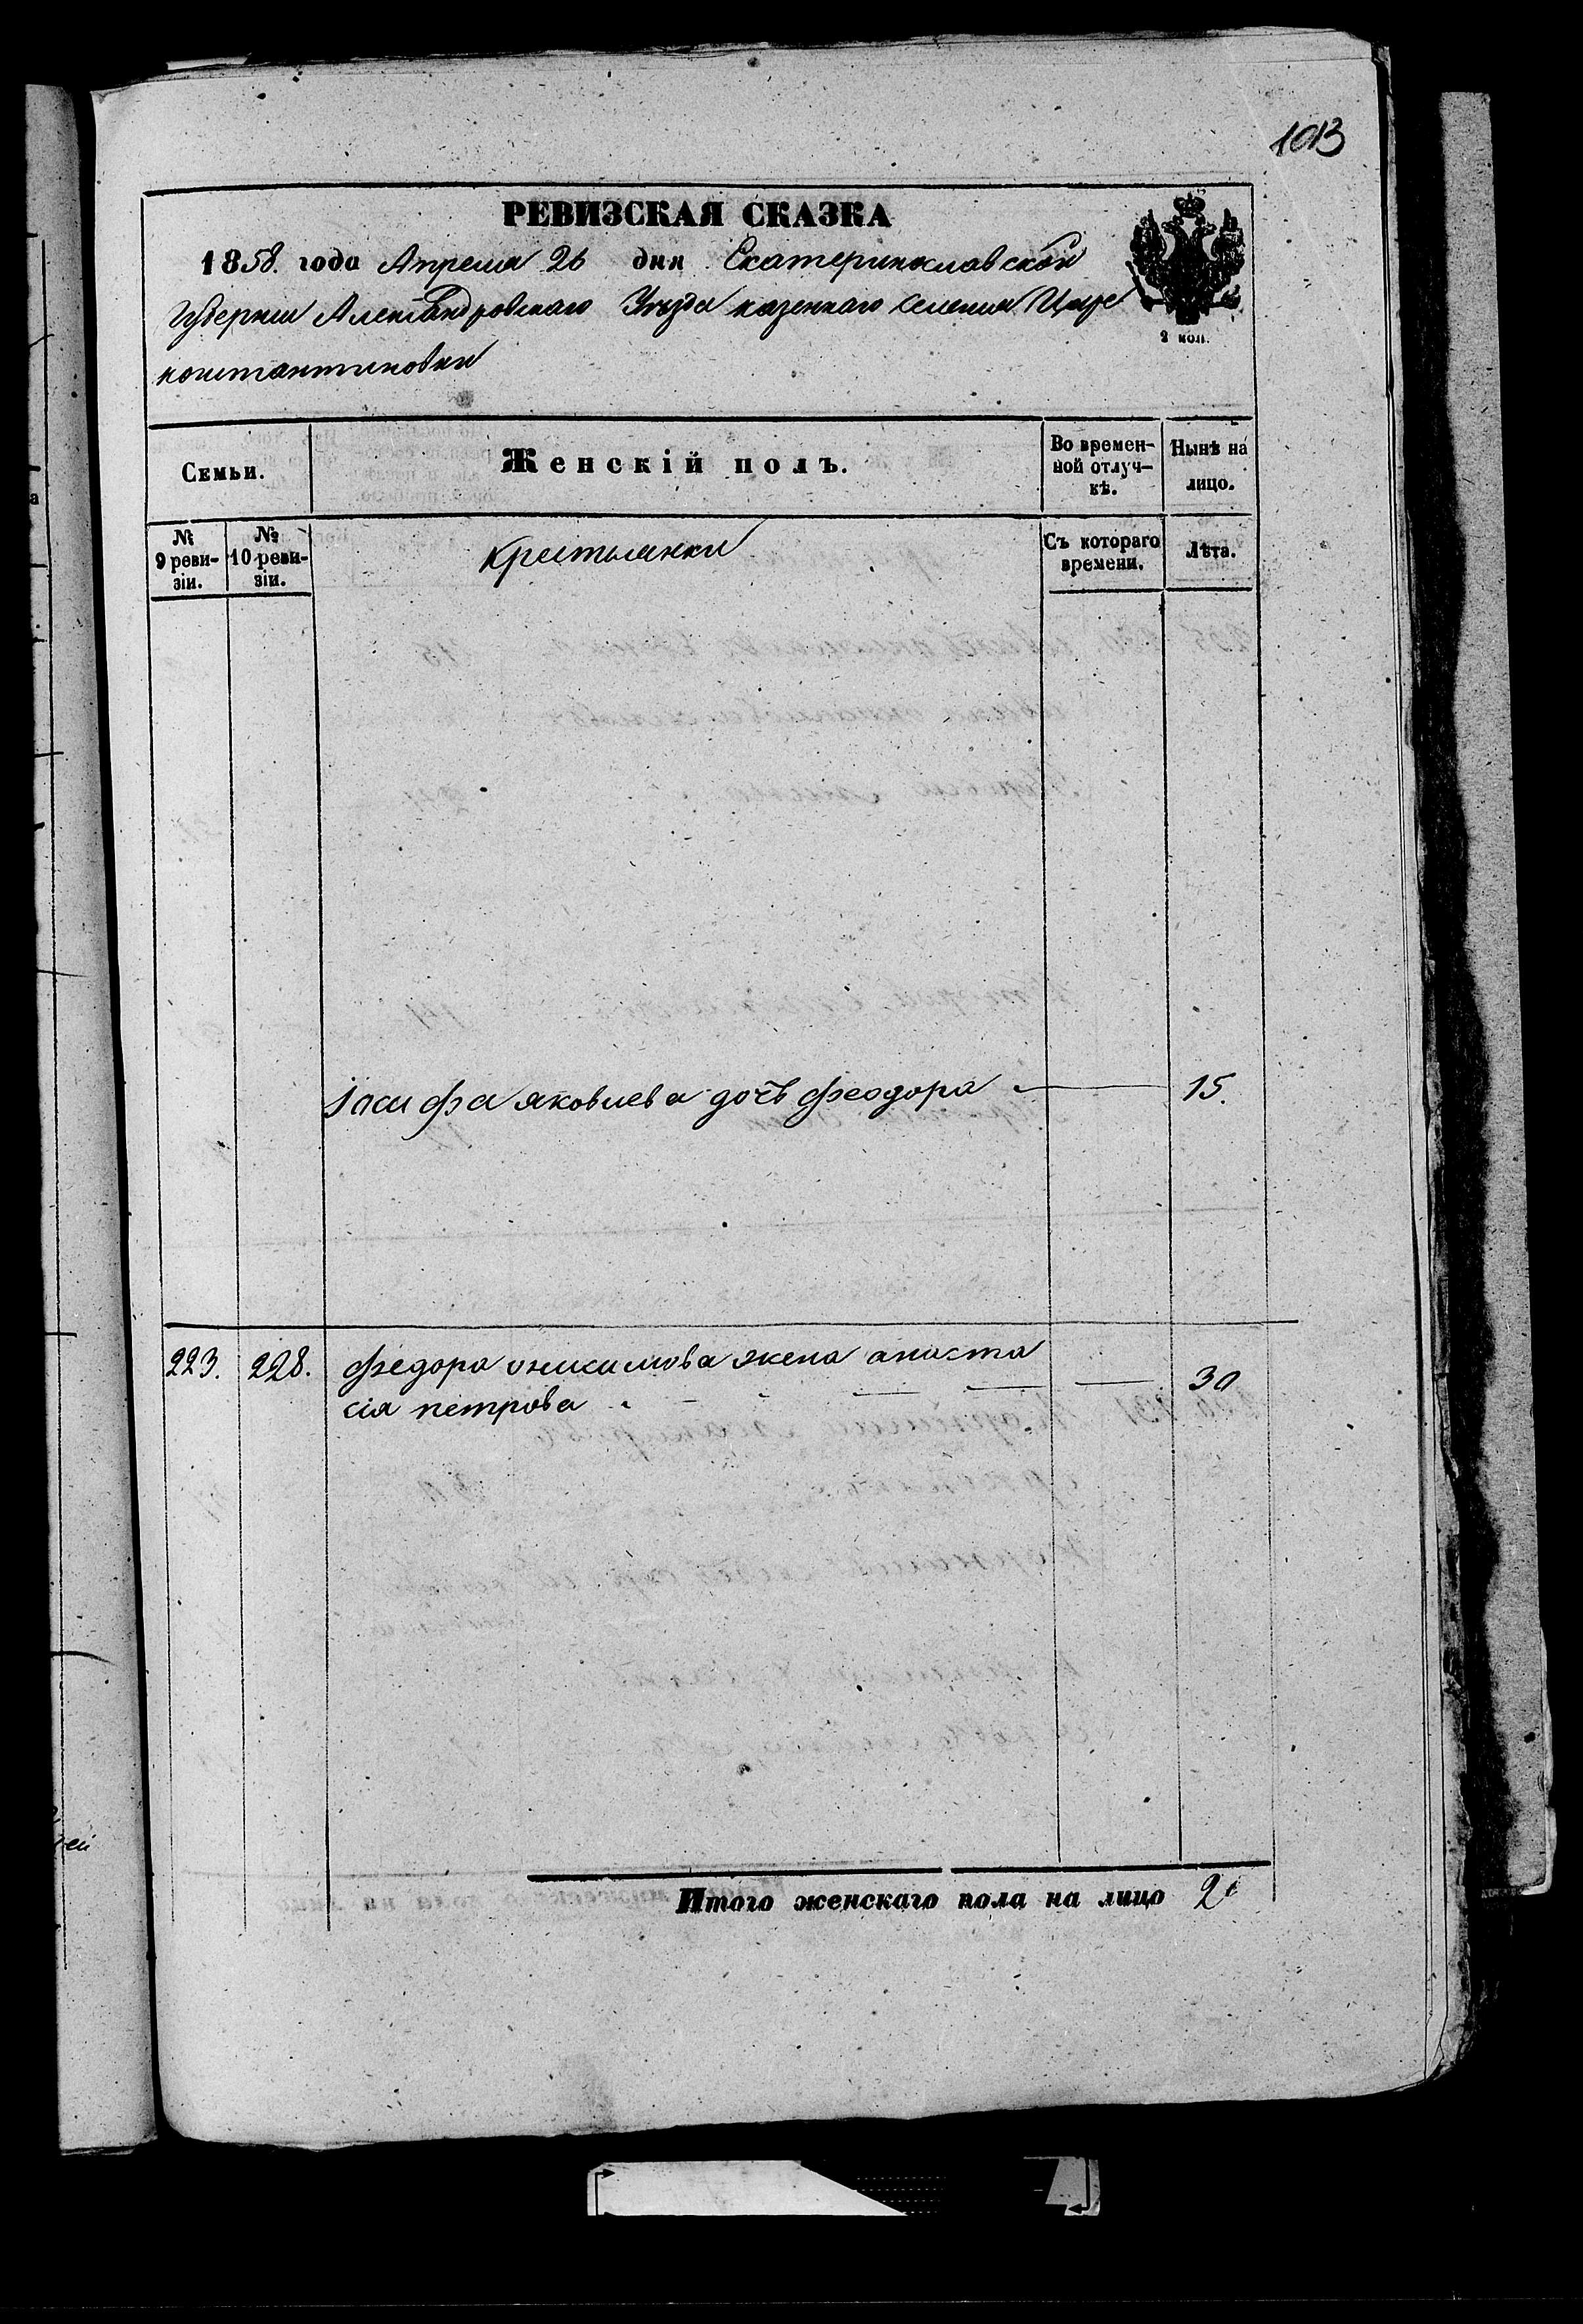 1013
РЕВИЗСКАЯ СКАЗКА
1858. года Апреля 26 дня Екатеринославской
Губернии Александровскаго Уезда казеннаго селения Царе
константиновки
2 коп.
Семьи. Женскій полъ. Во времен-ной отлуч-кѣ. Нынѣ на лицо.
№ 9 реви-зіи. № 10 реви-зіи. Крестьянки Съ котораго времени. Лѣта.
Іосифа яковлева дочь феодора 15.
223. 228. федора онисимова жена анаста 30
сія петрова
Итого женскаго пола на лицо 2